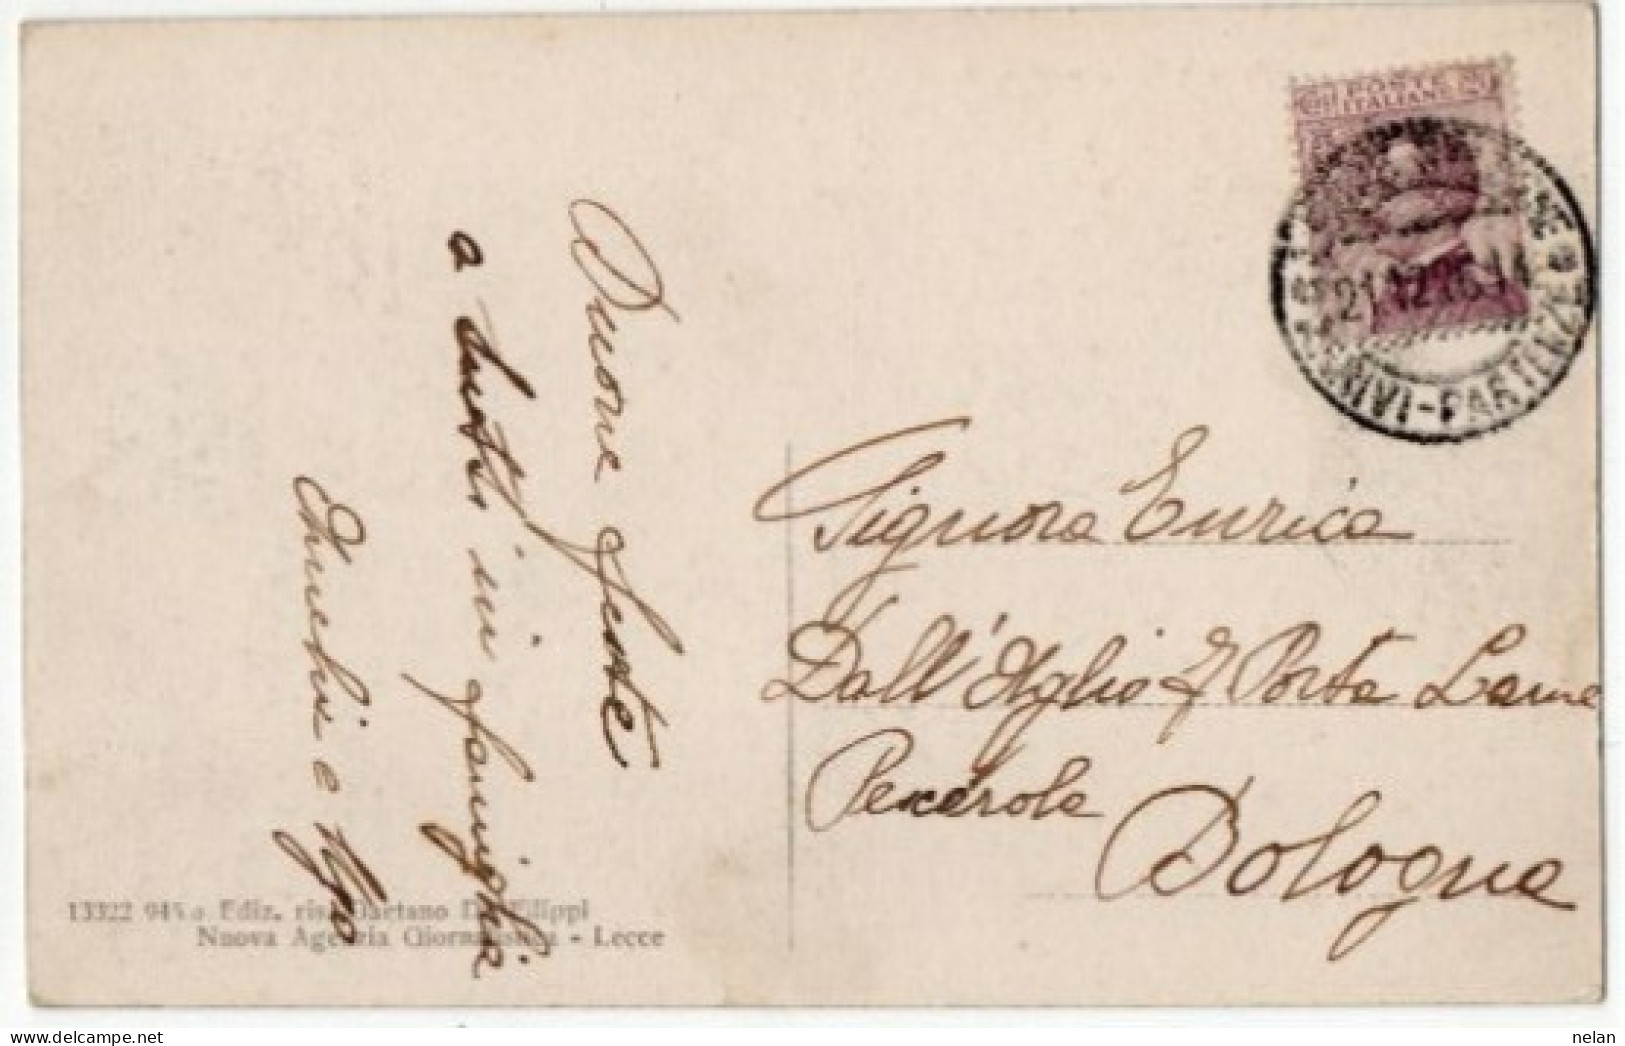 POSTE
ITALIANE
ARRIVI-PARTENZE
Buone feste
a tutti in famiglia
e Ugo
Signora Enrica
Dall'Aglio f. Porta Lame
Pescerole
Bologna
13322 945 o Ediz. ris. Gaetano De Filippi
Nuova Agenzia Giornalistica - Lecce
nelan